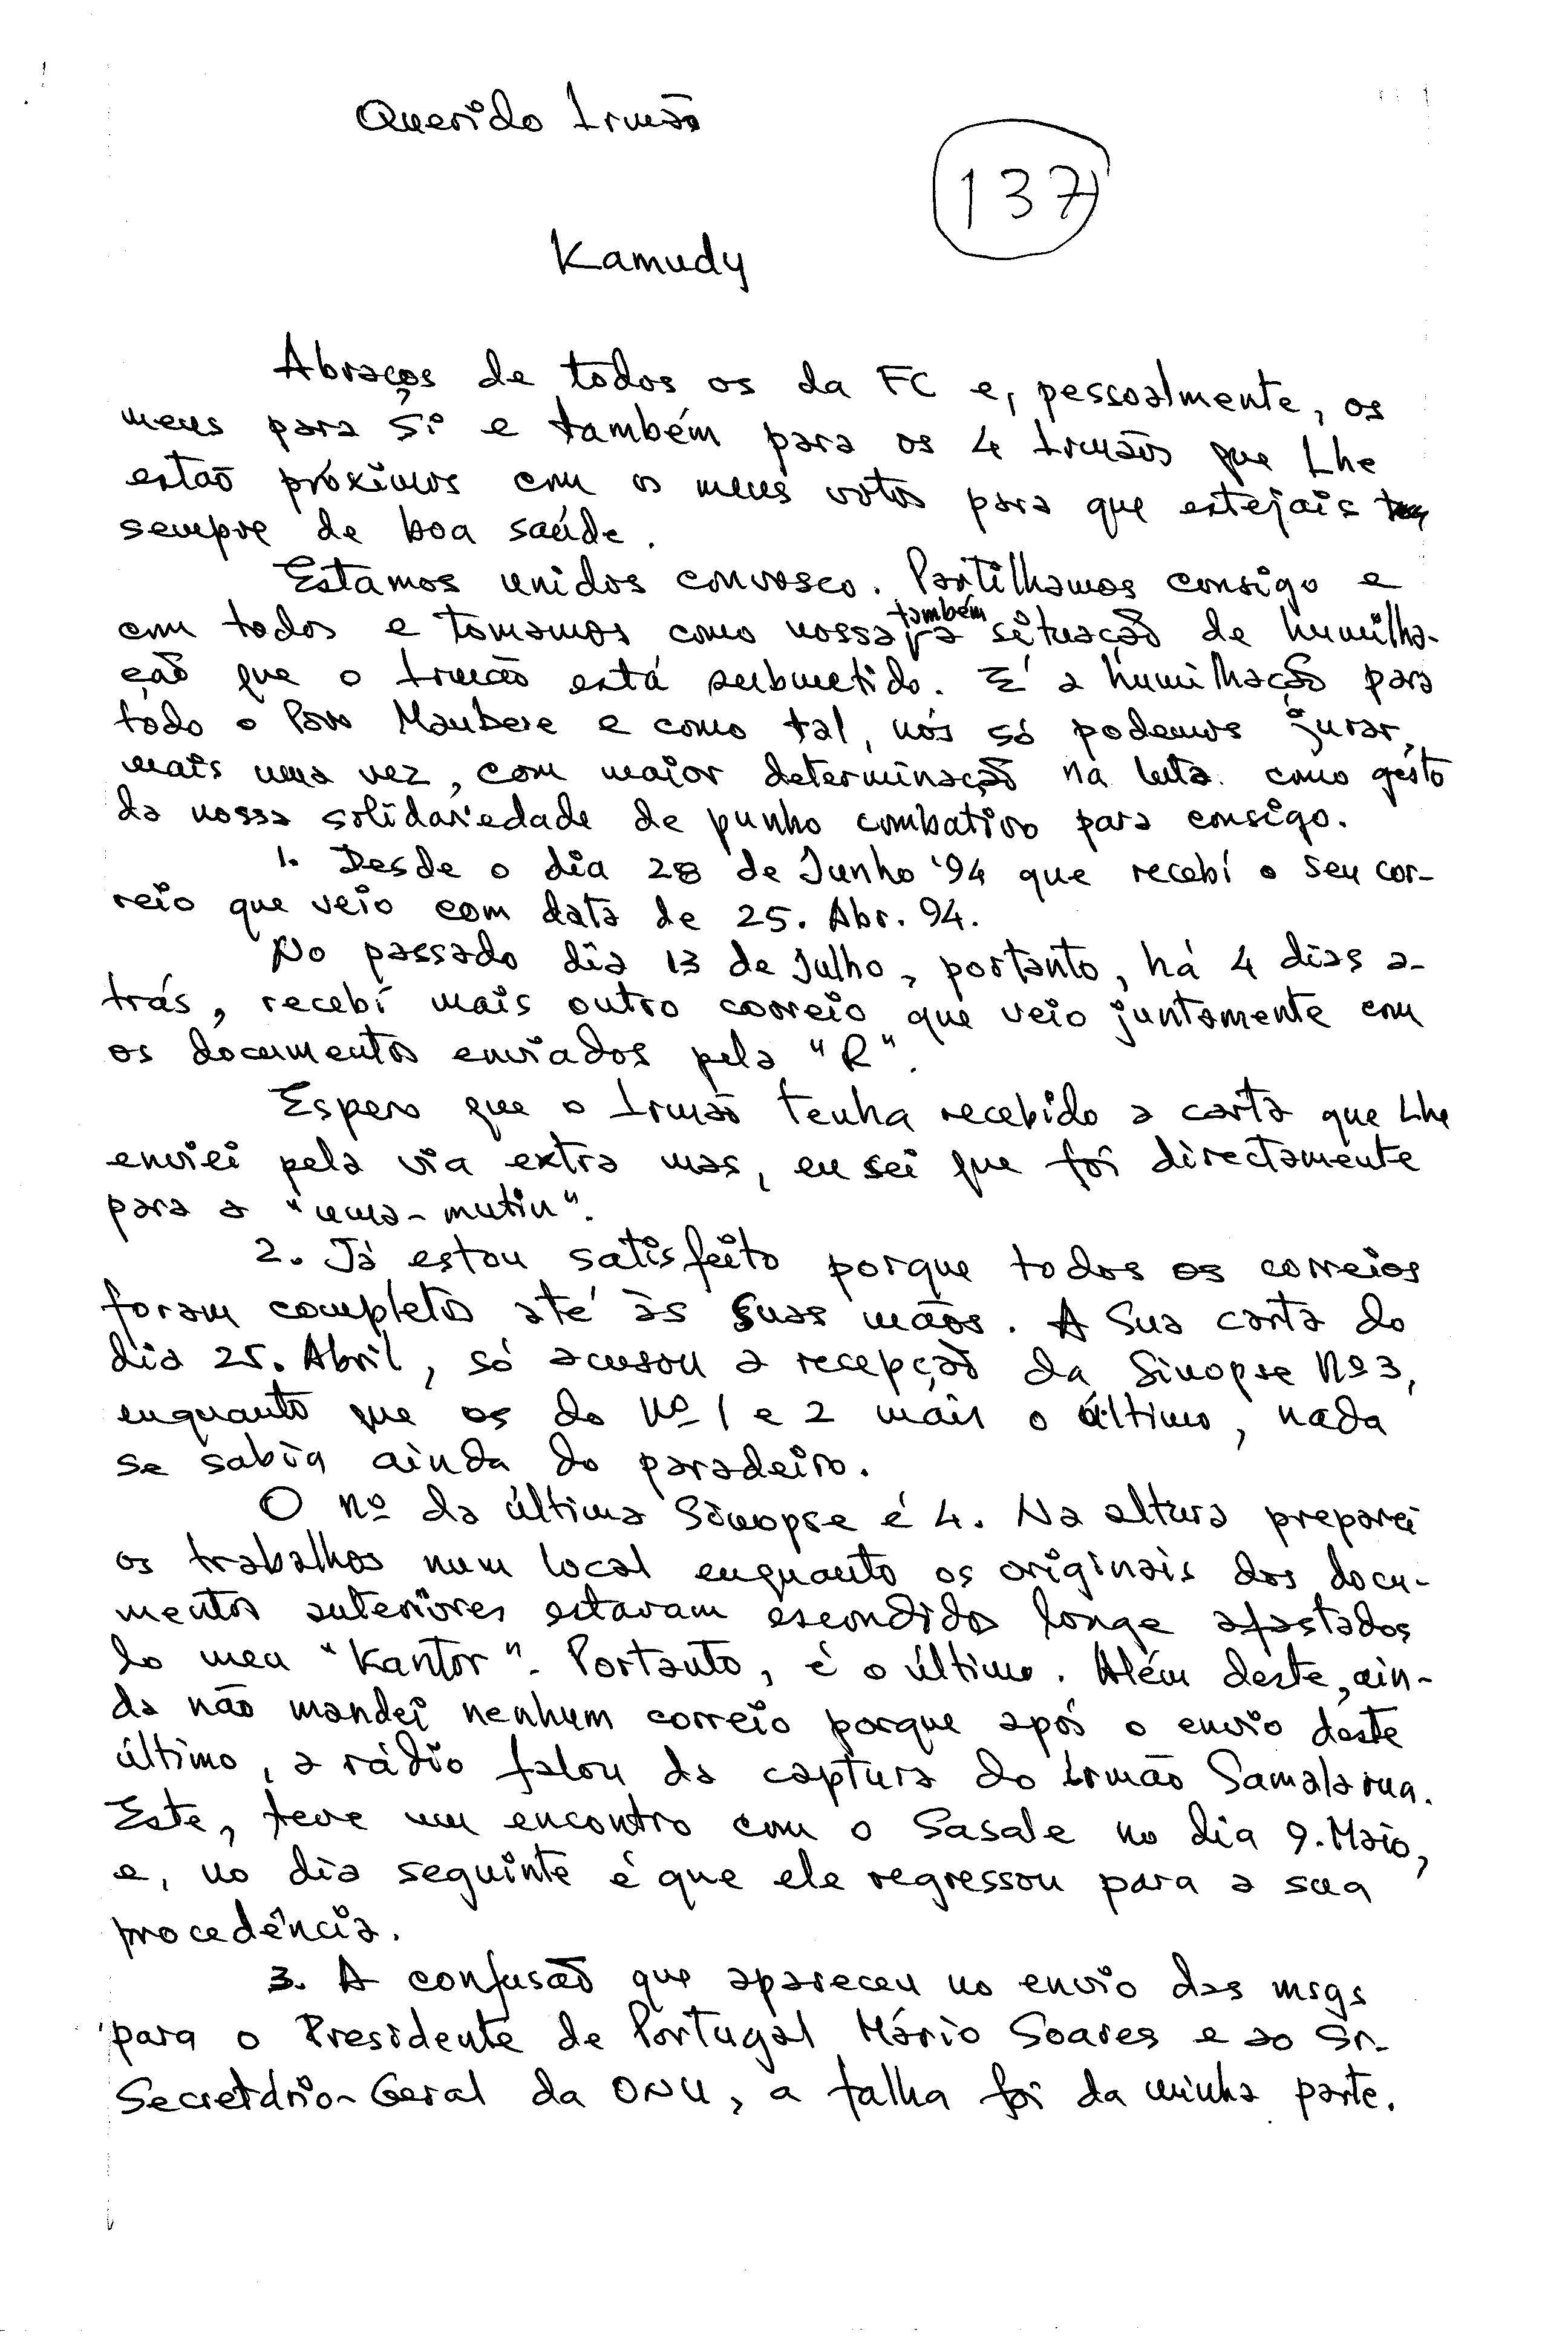 Querido Irmão
137
Kamudy
Abraços de todos os da FC e, pessoalmente, os
meus para Si e também para os 4 Irmãos que Lhe
estão próximos com os meus votos para que estejais
sempre de boa saúde.
Estamos unidos convosco. Partilhamos consigo e
com todos e tomamos como nossa também a situação de humilha-
ção que o Irmão está submetido. É a humilhação para
todo o Povo Maubere e como tal, nós só podemos jurar,
mais uma vez, com maior determinação na luta como gesto
da nossa solidariedade de punho combativo para consigo.
1. Desde o dia 28 de Junho '94 que recebí o seu cor-
reio que veio com data de 25. Abr. 94.
No passado dia 13 de Julho, portanto, há 4 dias a-
trás, recebí mais outro correio que veio juntamente com
os documentos enviados pela "R".
Espero que o Irmão tenha recebido a carta que Lhe
enviei pela via extra mas, eu sei que foi directamente
para a "uma-mutin".
2. Já estou satisfeito porque todos os correios
foram completos até às suas mãos. A Sua carta do
dia 25. Abril, só acusou a recepção da Sinopse Nº 3,
enquanto que os do Nº 1 e 2 mais o último, nada
se sabia ainda do paradeiro.
O nº da última Sinopse é 4. Na altura preparei
os trabalhos num local enquanto os originais dos docu-
mentos anteriores estavam escondidos longe afastados
do meu "Kantor". Portanto, é o último. Além deste, ain-
da não mandei nenhum correio porque após o envio deste
último, a rádio falou da captura do Irmão Samalarua.
Este, teve um encontro com o Sasale no dia 9. Maio,
e, no dia seguinte é que ele regressou para a sua
procedência.
3. A confusão que apareceu no envio das msgs
para o Presidente de Portugal Mário Soares e ao Sr.
Secretário-Geral da ONU, a falha foi da minha parte.